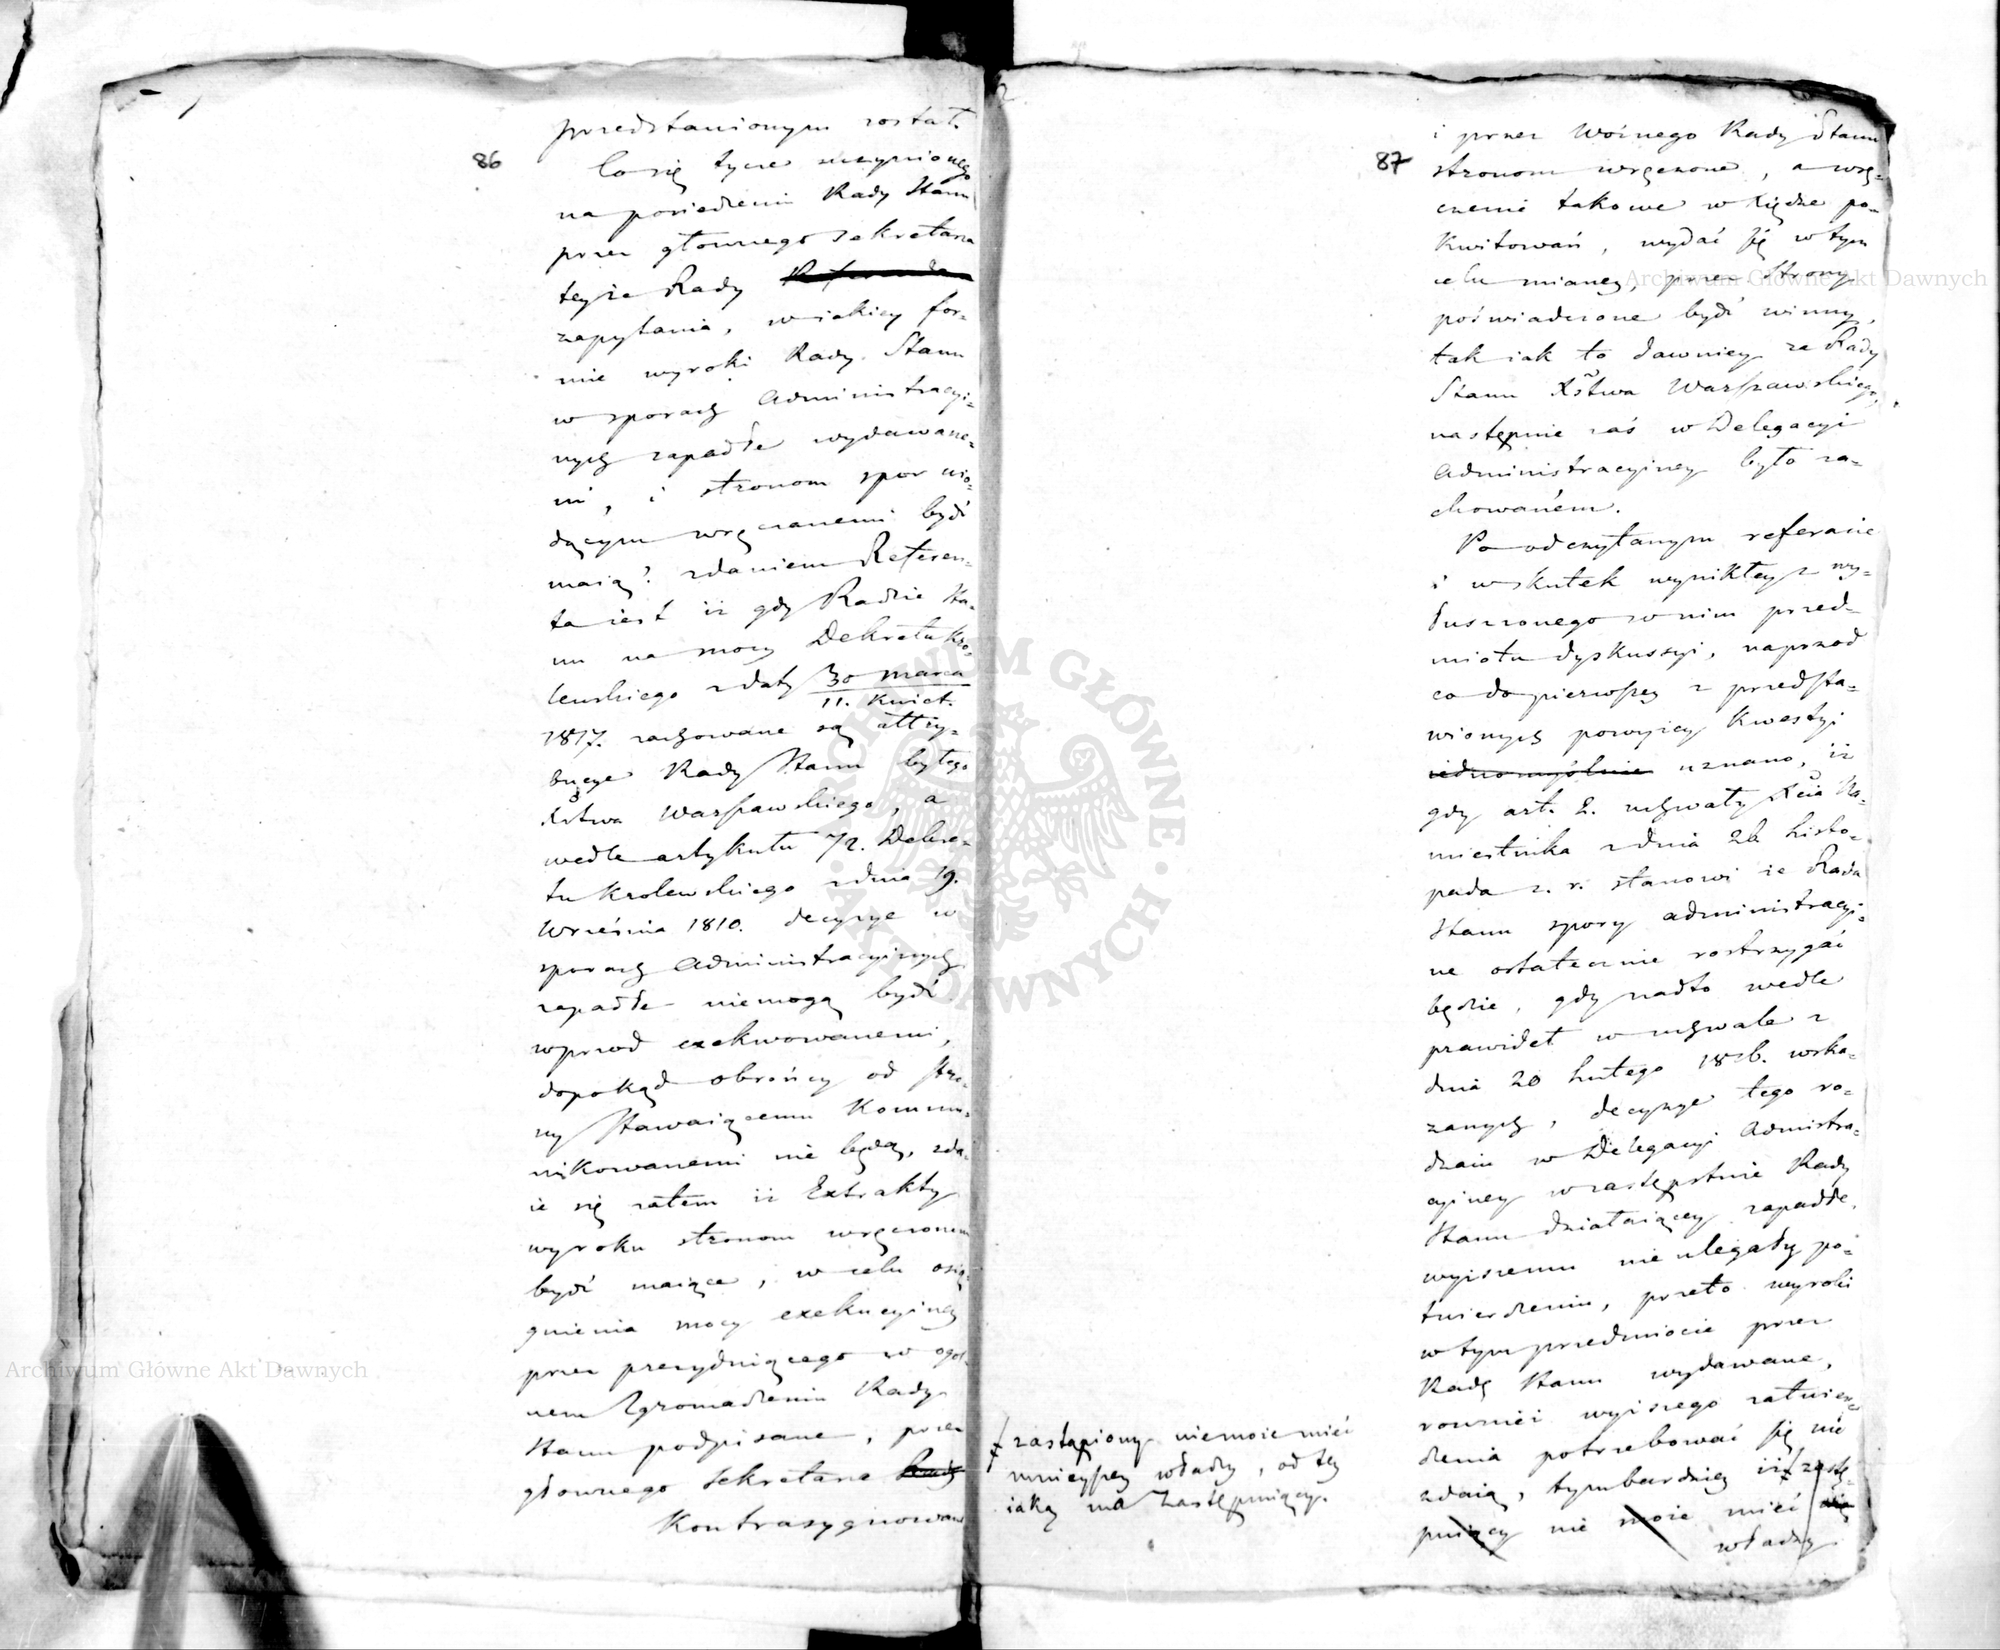 86
przedstawionym został.
Co się tycze uczynionego
na posiedzeniu Rady Stanu
przez głownego Sekretarza
teyże Rady
zapytania, w iakiey for-
mie wyroki Rady Stanu
w sporach Administracyi-
nych zapadłe wydawane-
mi, i stronom spor wio-
dącym wręczanemi bydź
maią? zdaniem Referen-
ta iest iż gdy Radzie Sta-
nu na mocy Dekretu Kro-
lewskiego z daty 30 marca
11. Kwiet.
1817. zachowane są attry-
bucye Rady Stanu byłego
Xstwa Warszawskiego, a
wedle artykułu 72. Dekre-
tu Krolewskiego z dnia 19.
Września 1810. decyzye w
sporach Administracyinych
zapadłe niemogą bydź
wprzod exekwowanemi,
dopokąd obrońcy od stro-
ny stawaiącemu Kommu-
nikowanemi nie będą, zda-
ie się zatem iż Extrakty
wyroku stronom wręczonem
bydź maiące, w celu osią-
gnienia mocy exekucyiney
przez prezyduiącego w ogol-
nem Zgromadzeniu Rady
Stanu podpisane, przez
głownego Sekretarza Rady
Kontrasygnowane
87
i przez Woźnego Rady Stanu
stronom wręczone, a wrę-
czenie takowe w Xiędze po-
kwitowań, wydać się w tym
celu mianey, przez Strony
poświadczone bydź winny,
tak iak to dawniey za Rady
Stanu Xstwa Warszawskiego,
następnie zaś w Delegacyi
Administracyiney było za-
chowaném.
Po odczytanym referacie
i wskutek wynikłey z wy-
łuszczonego w nim przed-
miotu dyskussyi, naprzod
co do pierwszey z przedsta-
wionych powyżey Kwestyi
iednomyślnie uznano, iż
gdy art. 2. uchwały Xcia Na-
miestnika z dnia 26 Listo-
pada z. r. stanowi że Rada
Stanu spory administracyi-
ne ostatecznie rostrzygać
będzie, gdy nadto wedle
prawideł w uchwale z
dnia 20 Lutego 1816. wska-
zanych, decyzye tego ro-
dzaiu w Delegacyi Admistra-
cyiney w zastępstwie Rady
Stanu działaiącey zapadłe,
wyższemu nie ulegały po-
twierdzeniu, przeto wyroki
w tym przedmiocie przez
Radę Stanu wydawane,
rownież wyższego zatwier-
dzenia potrzebować się nie
zdaią, tymbardziey iż zastę-
puiący nie może mieć
władzy
zastąpiony niemoże mieć
mnieyszey władzy, od tey
iaką ma Zastępuiący.
Archiwum Główne Akt Dawnych
Archiwum Główne Akt Dawnych
ARCHIWUM GŁÓWNE
AKT DAWNYCH